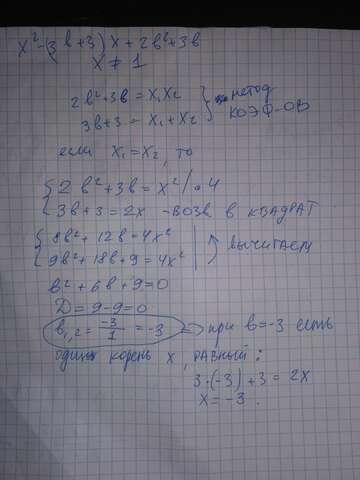 x²-(3b+3)x+2b²+3b
x ≠ 1
2b²+3b = x₁x₂
3b+3 = x₁+x₂
метод
КОЭФ-ОВ
если x₁=x₂, то
2b²+3b = x² / • 4
3b+3 = 2x - ВОЗВ В КВАДРАТ
8b²+12b=4x²
9b²+18b+9=4x²
ВЫЧИТАЕМ
b²+6b+9=0
D=9-9=0
b₁,₂= -3/1 = -3 => при b=-3 есть
один корень x, РАВНЫЙ:
3·(-3)+3=2x
x=-3.